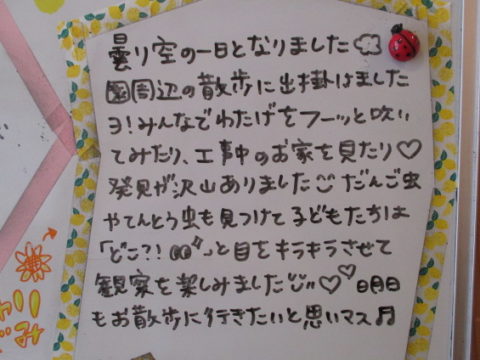 曇り空の一日となりました
園周辺の散歩に出掛けました
ヨ!みんなでわたげをフーッと吹い
てみたり、工事中のお家を見たり♡
発見が沢山ありました だんご虫
やてんとう虫も見つけて子どもたちは
「どこ?!👀」と目をキラキラさせて
観察を楽しみました♡♡明日
もお散歩に行きたいと思いマス♬